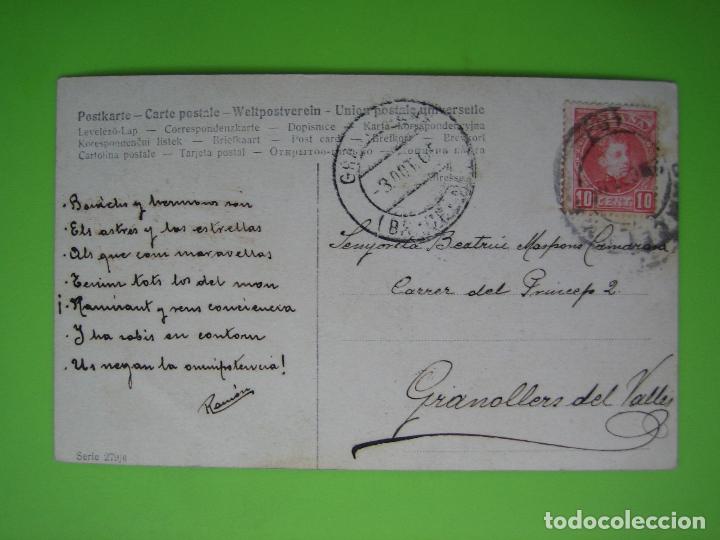 Postkarte — Carte postale — Weltpostverein — Union postale universelle
Levelező-Lap — Correspondenzkarte — Dopisnice — Karta korespondencyjna
Korespondenční lístek — Briefkaart — Post card — Brefkort — Brevkort
Cartolina postale — Tarjeta postal — Открытое
3 OCT 05
10 CENT. 10
y hermosos son
Els astres y las estrellas
Als que com maravellas
Tenim tots los del mon
y sens conciencia
Y ha sabis en contorn
Us negan la omnipotencia!
Ramón
Senyoreta Beatriu Maspons Camarasa
Carrer del Princep 2.
Granollers del Vallés
Serie 279/6
todocoleccion